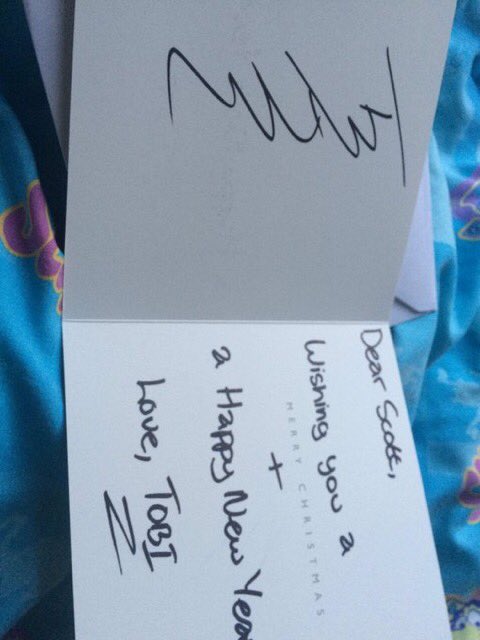 Dear Scott,
Wishing you a
MERRY CHRISTMAS
+
a Happy New Year
Love, TOBI